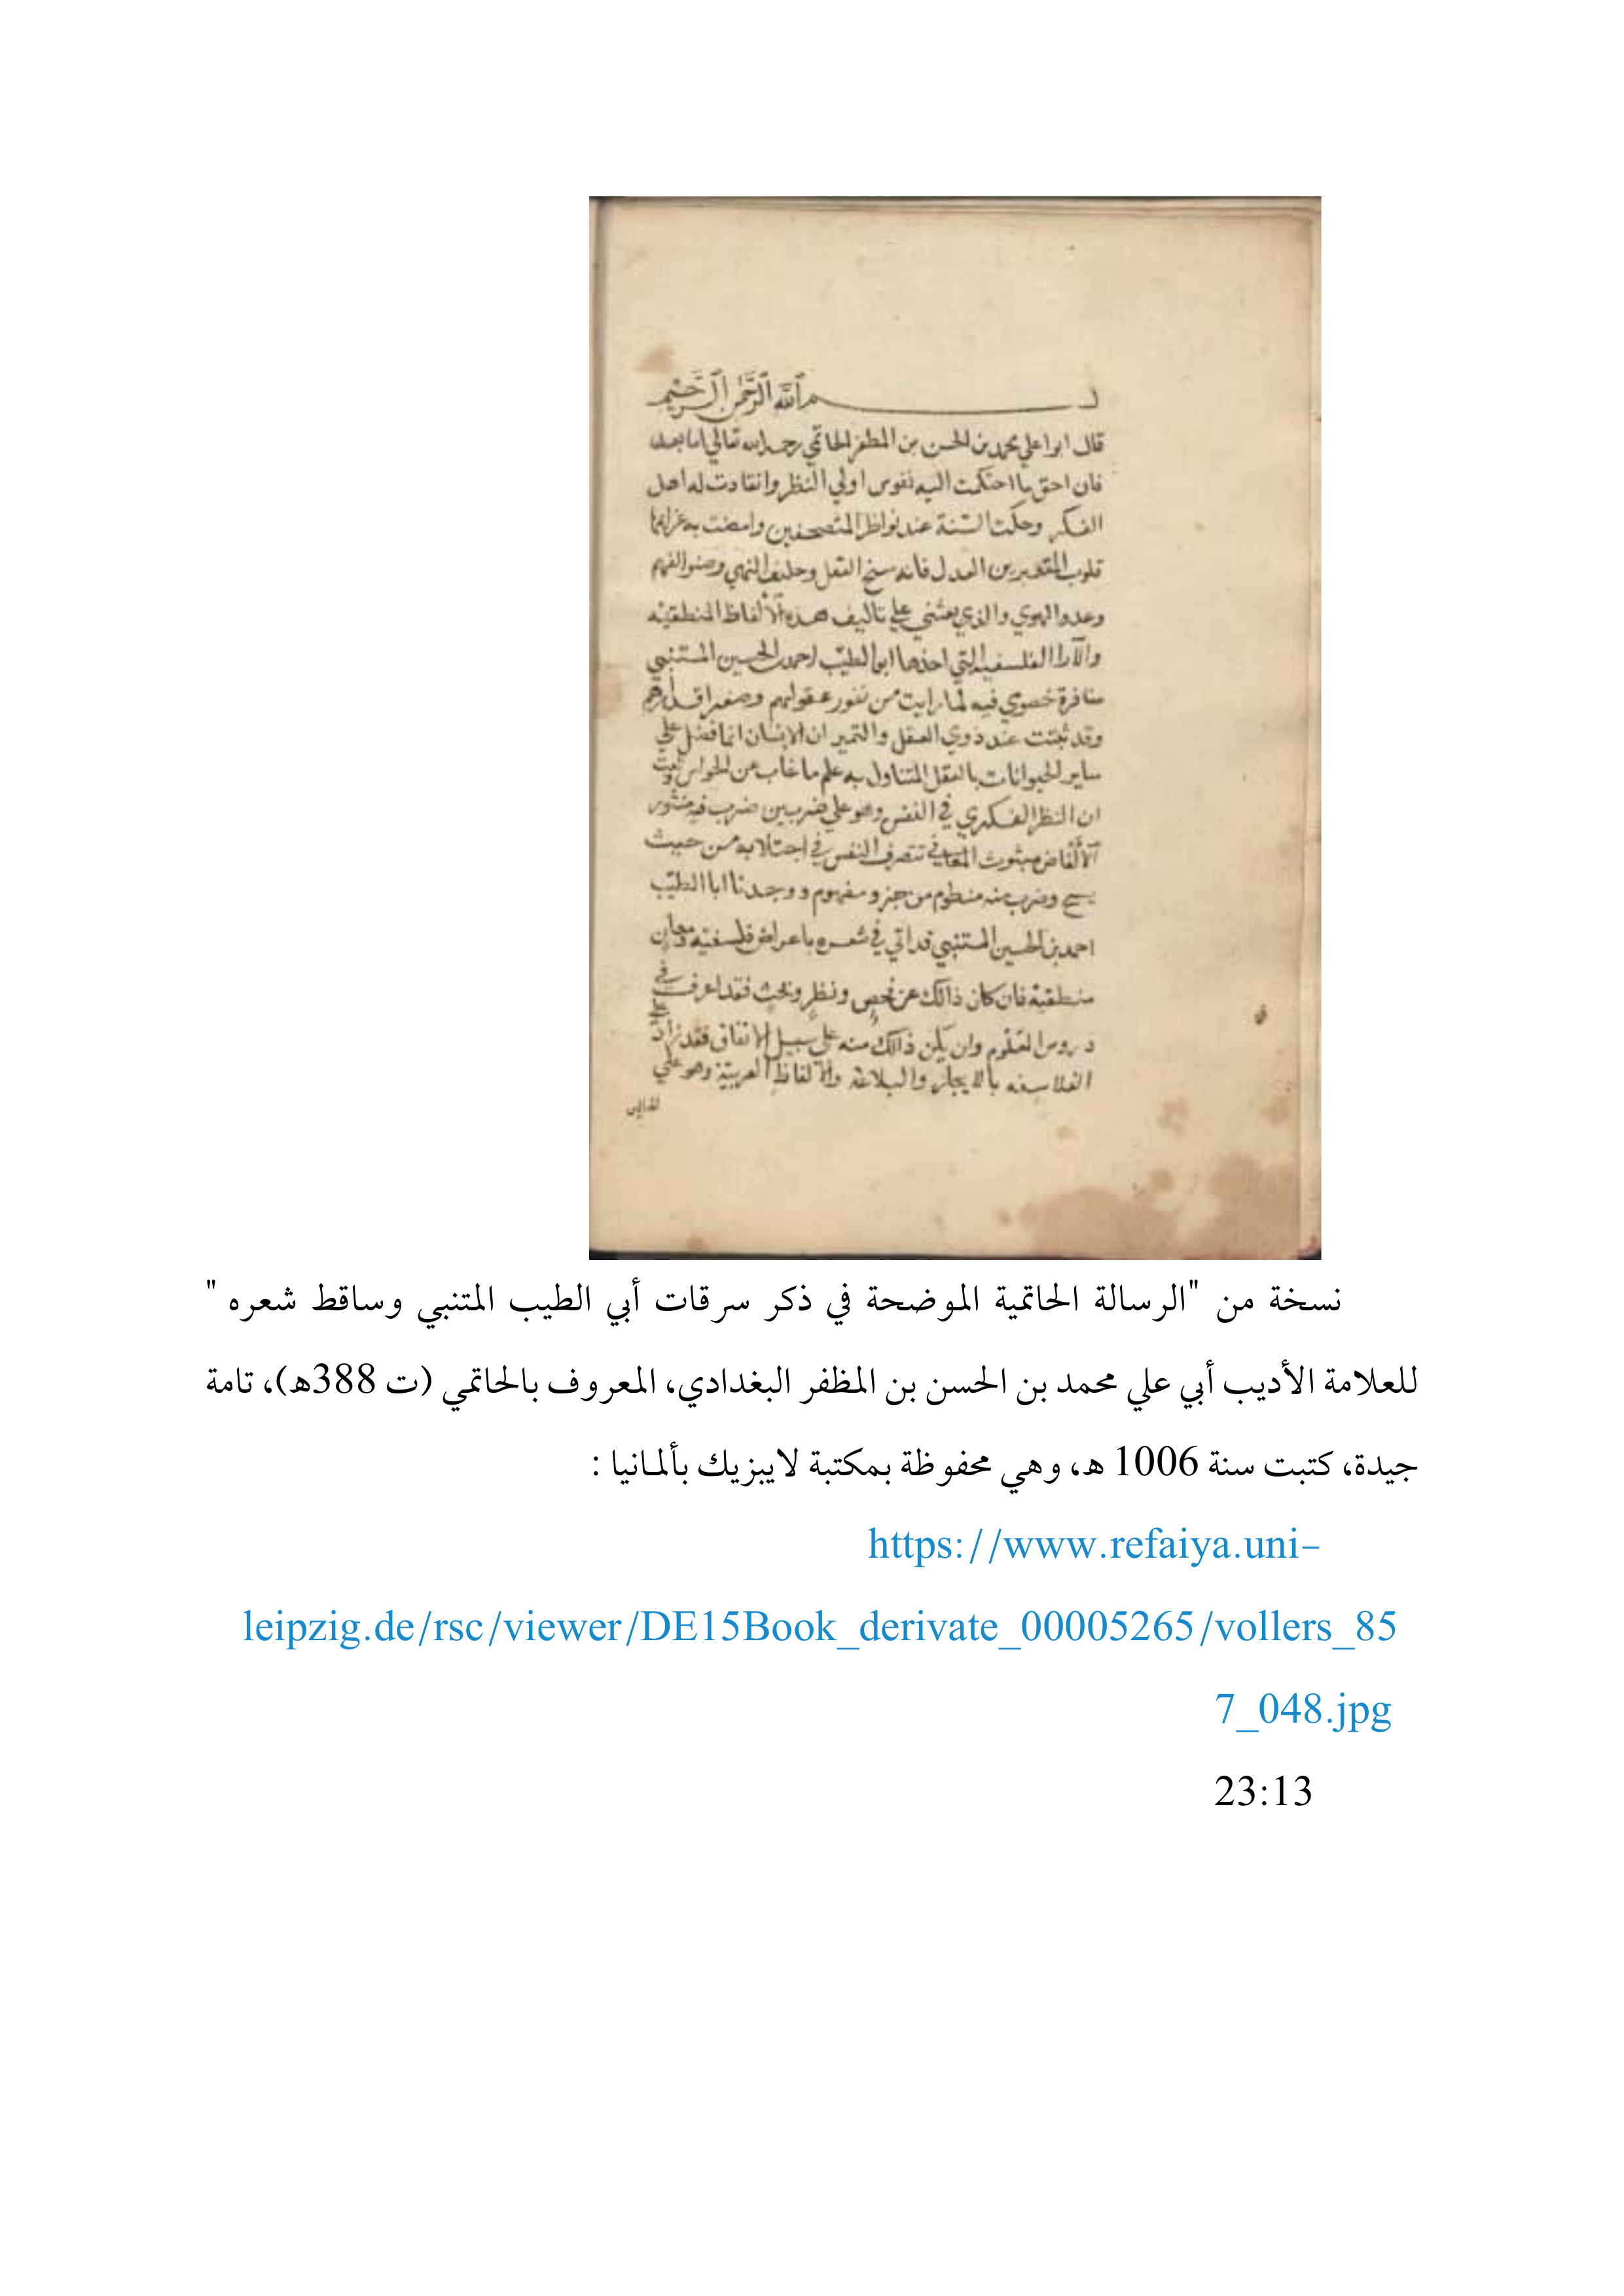 بسم الله الرحمن الرحيم
قال ابوا علي محمد بن الحسن بن المظفر الحاتمي رحمه الله تعالي اما بعد
فان احق ما احتكمت اليه نفوس اولي النظر وانقادت له اهل
الفكر وحكت السنة عند نواظر المتصفحين وامضت به عزايمها
قلوب المعتبرين العدل فانه سنخ العقل وحليف النهي وصنو الفهم
وعدو الهوي والذي بعثني علي تاليف هذه الألفاظ المنطقيه
والآرا الفلسفيه التي اخذها ابوا الطيب احمد بن الحسين المتنبي
منافرة خصومي فيه لما رايت من نفور عقولهم وصغر اقدارهم
وقد ثبتت عند ذوي العقل والتميز ان الانسان انما فضل علي
ساير الحيوانات بالعقل المتناول به علم ما غاب عن الحواس
ان النظر الفكري في النفس وهو علي ضربين ضرب فيه منثور
الألفاض مبثوث المعاني تتصرف النفس في اجتلابه من حيث
وضرب منه منظوم من ومفهوم ووجدنا ابا الطيب
احمد بن الحسين المتنبي قد اتي في شعره باعراض فلسفيه ومعان
منطقيه فان كان ذالك عن فحص ونظر وبحث فقد اعرف في
دروس العلوم وان يكن ذالك منه علي سبيل الاتفاق فقد زاد علي
الفلاسفه بالايجاز والبلاغه والالفاظ العربية وهو علي
نسخة من "الرسالة الحاتمية الموضحة في ذكر سرقات أبي الطيب المتنبي وساقط شعره "
للعلامة الأديب أبي علي محمد بن الحسن بن المظفر البغدادي، المعروف بالحاتمي (ت 388هـ)، تامة
جيدة، كتبت سنة 1006 هـ، وهي محفوظة بمكتبة لايبزيك بألمانيا :
https://www.refaiya.uni-
leipzig.de/rsc/viewer/DE15Book_derivate_00005265/vollers_85
7_048.jpg
23:13